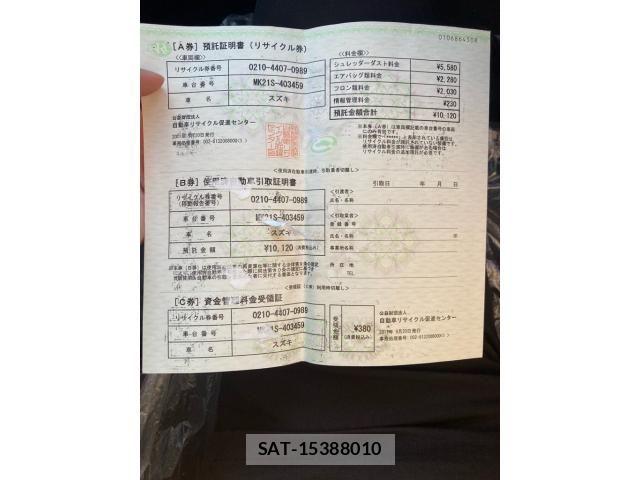 0106864508
[A券] 預託証明書 (リサイクル券)
<<車両欄>>
リサイクル券番号 0210-4407-0989
車台番号 MK21S-403459
車 名 スズキ
公益財団法人
自動車リサイクル促進センター
<<料金欄>>
シュレッダーダスト料金 ¥5,580
エアバッグ類料金 ¥2,280
フロン類料金 ¥2,030
情報管理料金 ¥230
預託金額合計 ¥10,120
[B券] 使用済自動車引取証明書
リサイクル券番号
(移動報告番号) 0210-4407-0989
車台番号 MK21S-403459
車 名 スズキ
預託金額 ¥10,120 (消費税込み)
引取日 年 月 日
<引渡者>
氏名・名称
<引取業者>
登録番号
氏名・名称
事業所名称
所在地
TEL
[C券] 資金管理料金受領証
リサイクル券番号 0210-4407-0989
車台番号 MK21S-403459
車 名 スズキ
受領金額 ¥380
(消費税込み)
公益財団法人
自動車リサイクル促進センター
SAT-15388010